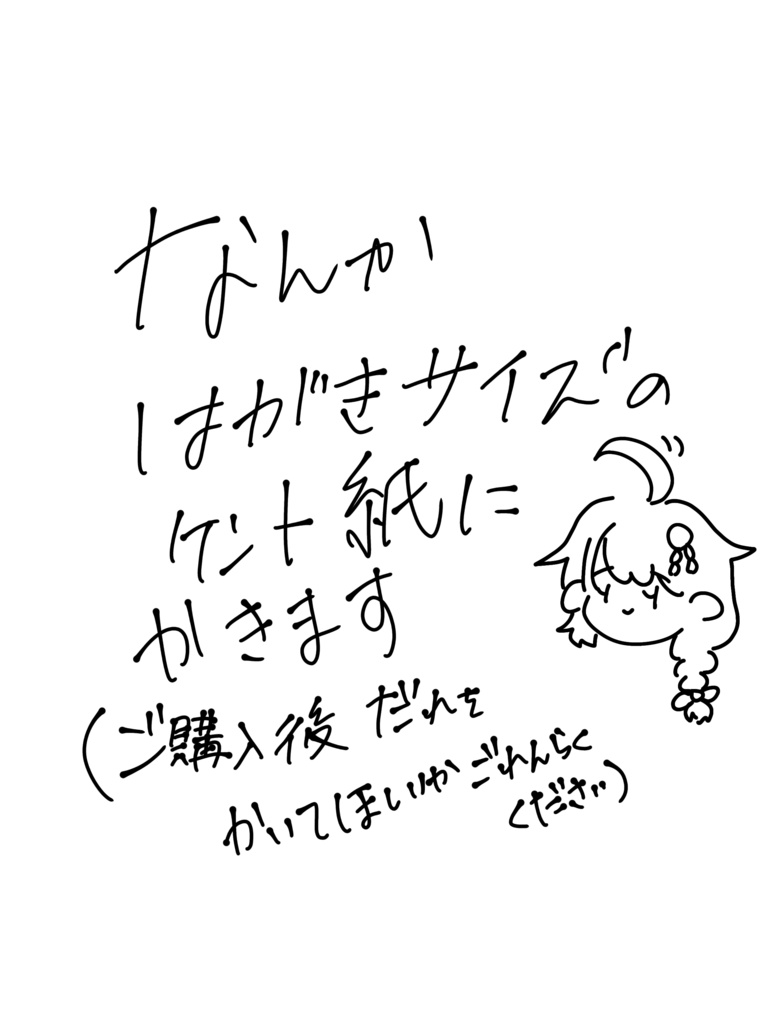 なんか
はがきサイズの
ケント紙に
かきます
(ご購入後だれを
かいてほしいかごれんらく
ください)